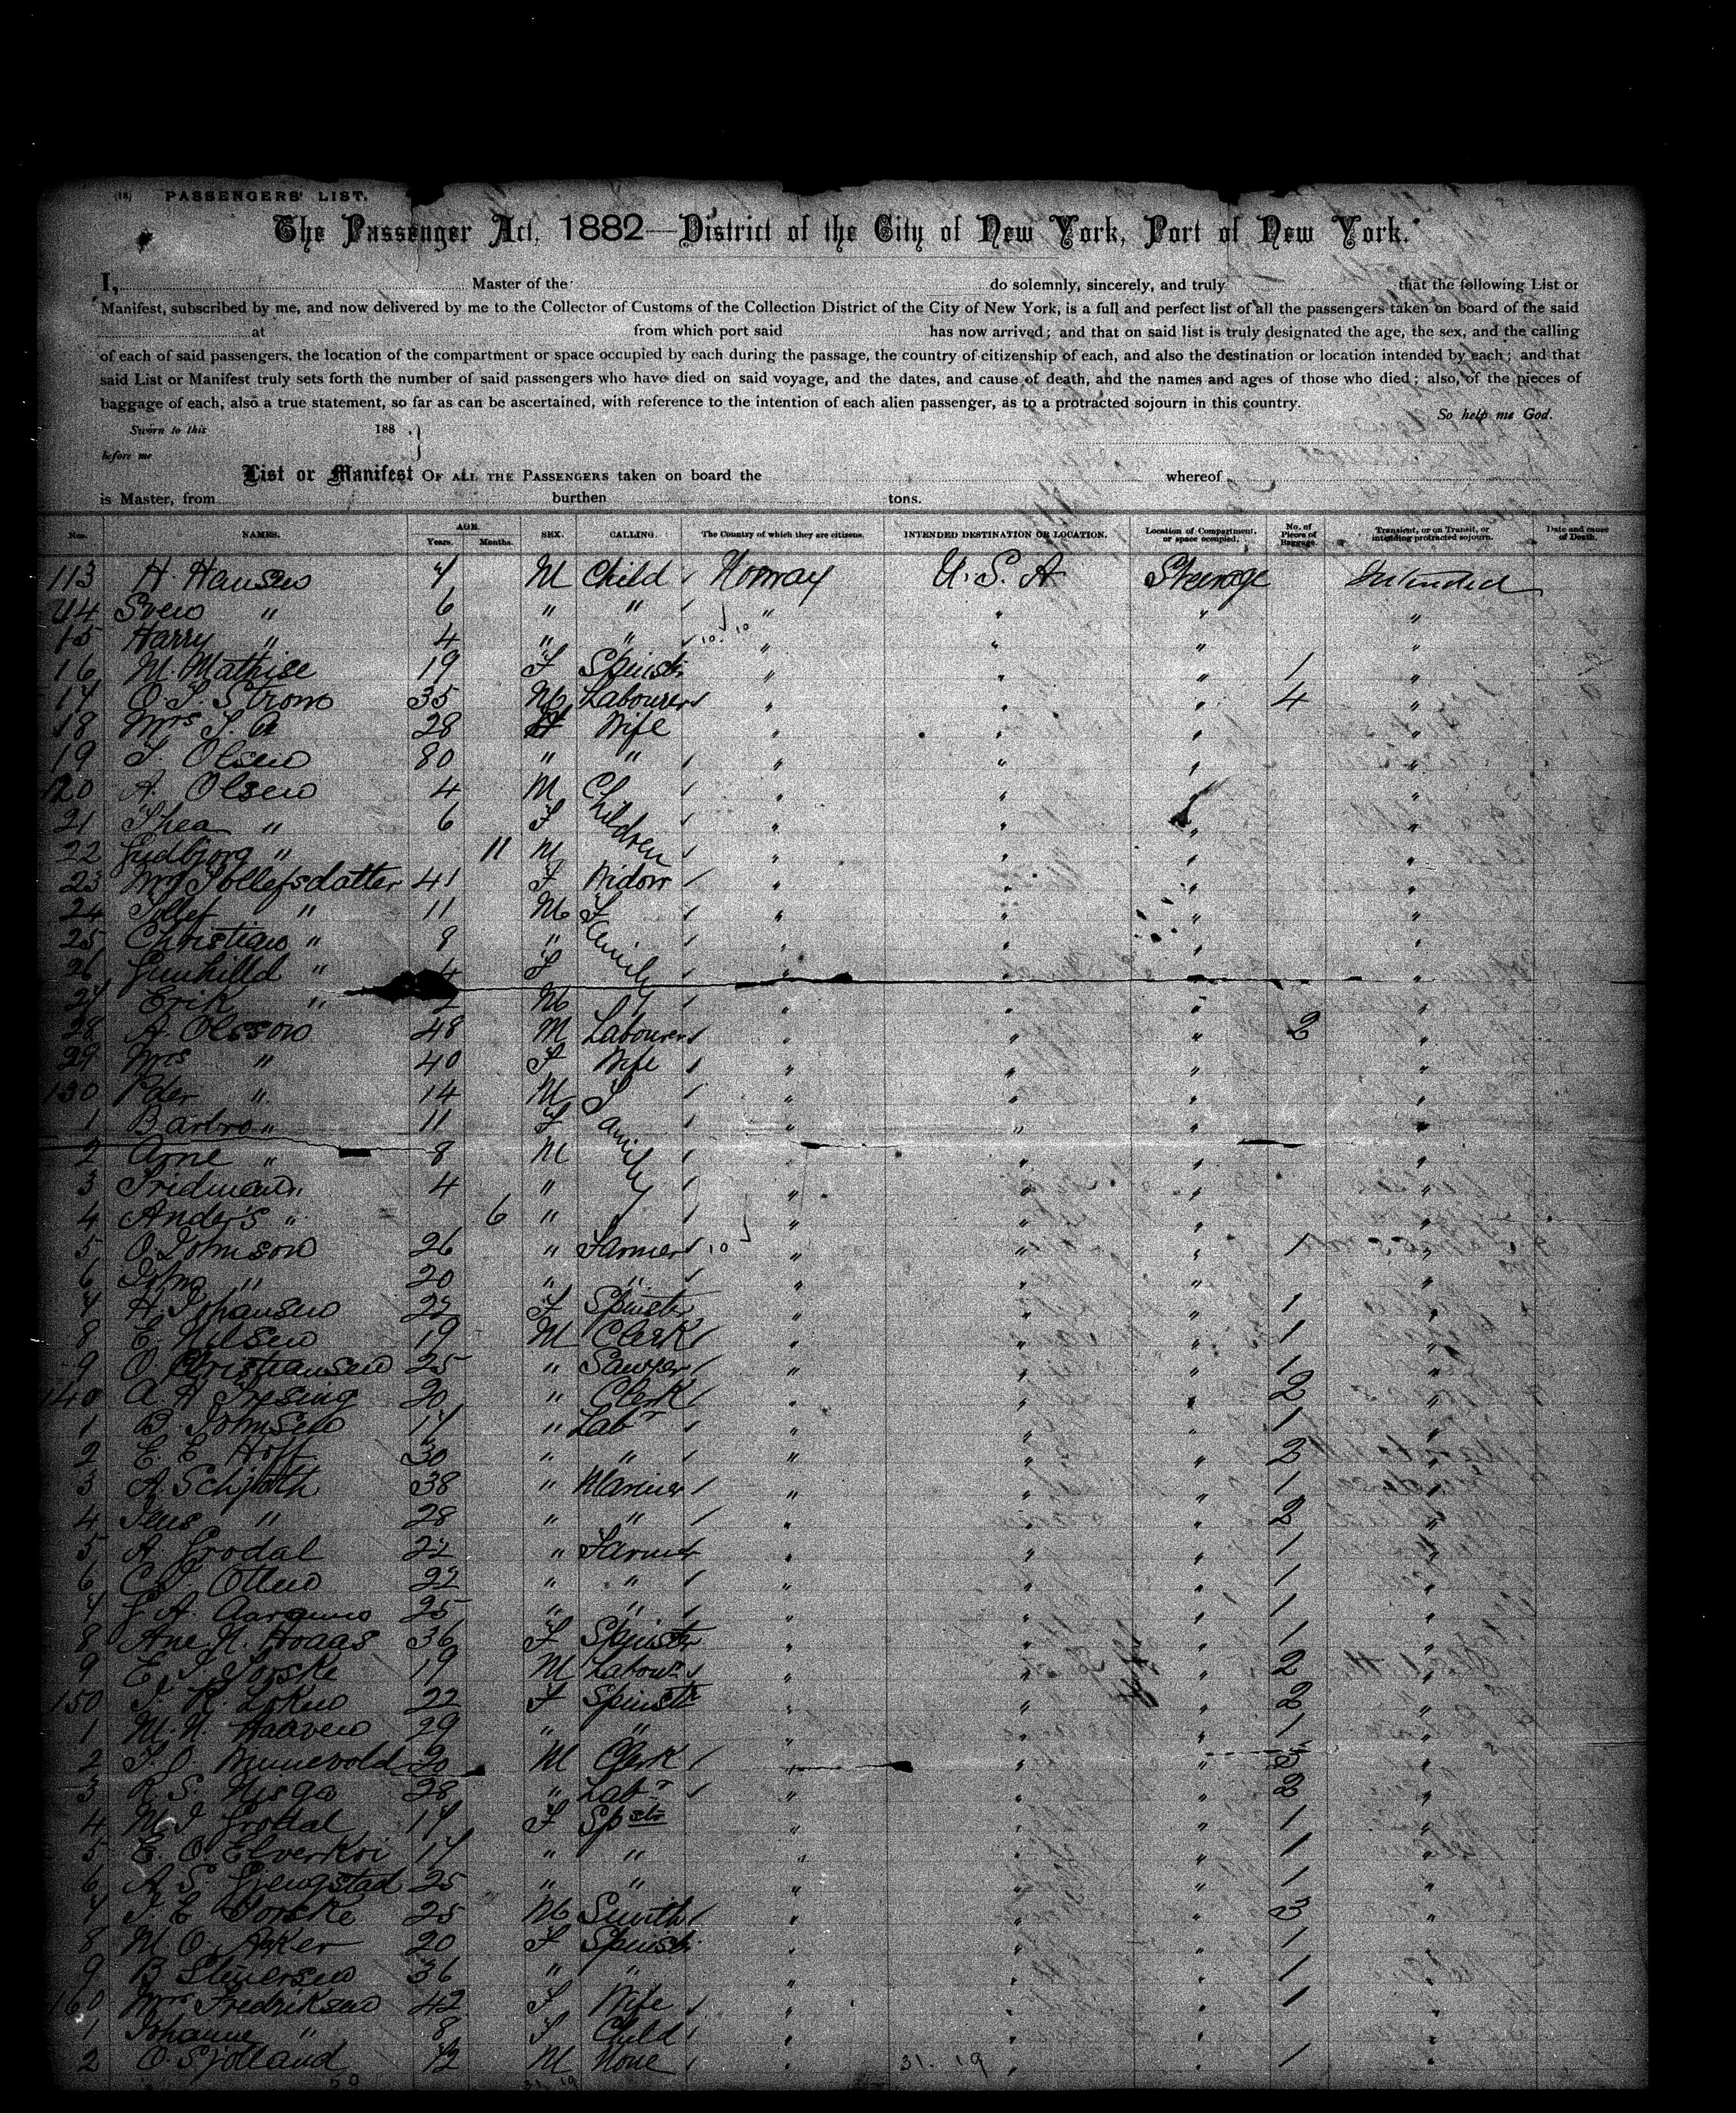 (18) PASSENGERS' LIST.
The Passenger Act, 1882—District of the City of New York, Port of New York.
I, Master of the do solemnly, sincerely, and truly that the following List or
Manifest, subscribed by me, and now delivered by me to the Collector of Customs of the Collection District of the City of New York, is a full and perfect list of all the passengers taken on board of the said
at from which port said has now arrived; and that on said list is truly designated the age, the sex, and the calling
of each of said passengers, the location of the compartment or space occupied by each during the passage, the country of citizenship of each, and also the destination or location intended by each; and that
said List or Manifest truly sets forth the number of said passengers who have died on said voyage, and the dates, and cause of death, and the names and ages of those who died; also, of the pieces of
baggage of each, also a true statement, so far as can be ascertained, with reference to the intention of each alien passenger, as to a protracted sojourn in this country.
So help me God.
Sworn to this 188
before me
List or Manifest OF ALL THE PASSENGERS taken on board the whereof
is Master, from burthen tons.
Nos. NAMES. AGE. Years. Months. SEX. CALLING. The Country of which they are citizens. INTENDED DESTINATION OR LOCATION. Location of Compartment, or space occupied. No. of Pieces of Baggage. Transient, or on Transit, or intending protracted sojourn. Date and cause of Death.
113 H. Hansen 7 M Child Norway U.S.A Steerage Intended
114 Sven " 6 " " " " " "
15 Harry " 4 " " " " " "
16 M. Mathise 19 F Spinstr " " " 1 "
17 O. S. Strom 35 M Labourer " " " 4 "
18 Mrs 28 F Wife " " " "
19 Olsen 80 " " " " " "
120 A. Olsen 4 M Children " " " "
21 Thea " 6 F " " " "
22 Gudbjorg " 11 M " " " "
23 Mrs Tollefsdatter 41 F Widow " " " "
24 Tollef " 11 M Family " " " "
25 Christian " 8 " " " " "
26 Gunhilld " 4 F " " " "
27 Erik " M " " " "
28 A. Olsson 48 M Labourer " " " 2 "
29 Mrs " 40 F Wife " " " "
130 Peder " 14 M Family " " " "
1 Barbro " 11 F " " " "
2 Arne " 8 M " " " "
3 Fridman " 4 " " " " "
4 Anders " 6 " " " " "
5 O. Johnson 26 " Farmer " " " 1 "
6 John " 20 " " " " " "
7 H. Johansen 22 F Spinstr " " " 1 "
8 E. Nilsen 19 M Clerk " " " 1 "
9 O. Christiansen 25 " Sawyer " " " 1 "
140 A. H. 20 " Clerk " " " 2 "
1 B. Johnsen 17 " Labr " " " 1 "
2 E. E. Hoff 30 " " " " " 2 "
3 A. Schjoth 38 " Mariner " " " 1 "
4 Jens " 28 " " " " " 2 "
5 A. Grodal 22 " Farmer " " " 1 "
6 C. J. Otten 22 " " " " " 1 "
7 25 " " " " " 1 "
8 Ane N. Hoaas 36 F Spinstr " " " 1 "
9 E. J. Torske 19 M Labour " " " 2 "
150 Loken 22 F Spinstr " " " 2 "
1 M. N. Haaven 29 " " " " " 1 "
2 20 M Clerk " " " 2 "
3 R. S. 28 " Labr " " " 2 "
4 M. J. Grottal 17 F Spstr " " " 1 "
5 E. O. Elverkoi 17 " " " " " 1 "
6 A. S. Grengstad 25 " " " " " 1 "
7 Torske 25 M Smith " " " 3 "
8 M. O. Aker 20 F Spinstr " " " 1 "
9 B. Stenersen 36 " " " " " 1 "
160 Mrs Fredriksen 42 F Wife " " " 1 "
1 Johanne " 8 F Child " " " "
2 O. Sjolland 72 M None " " " 1 "
31. 19